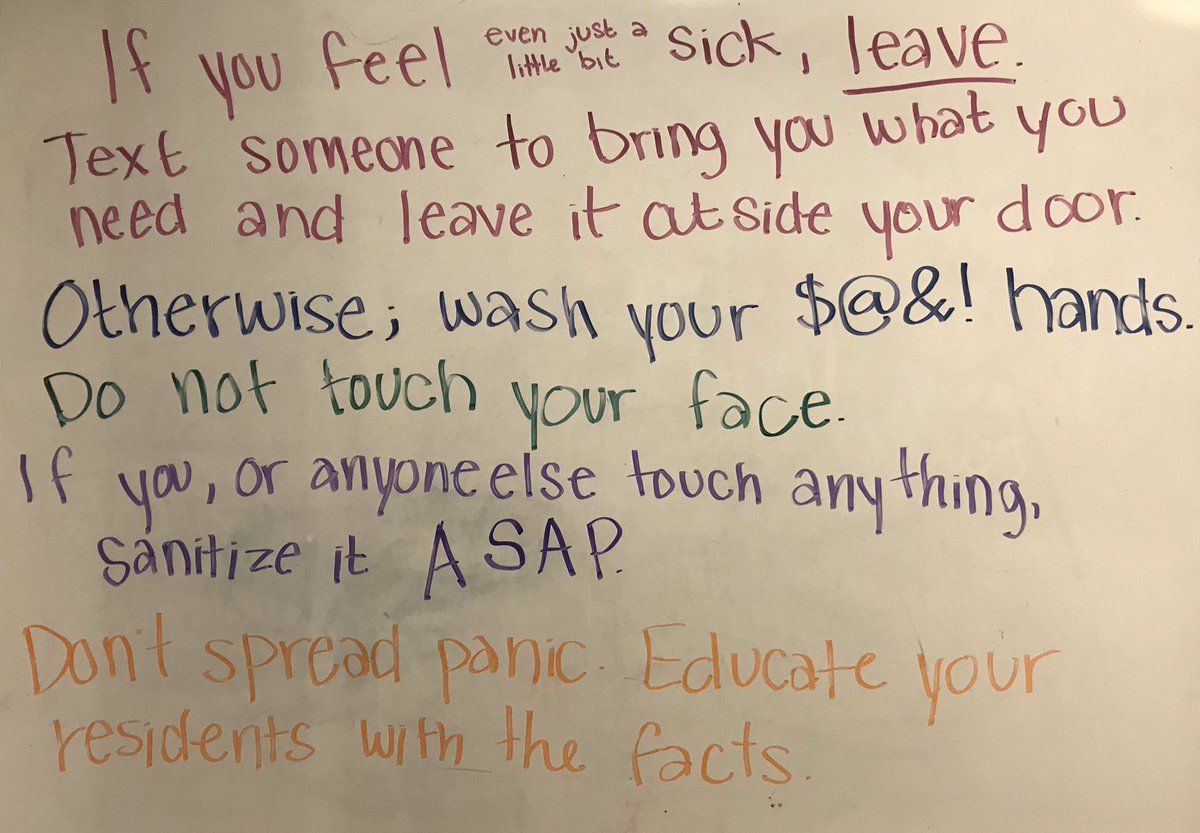 If you feel even just a little bit sick, leave.
Text someone to bring you what you
need and leave it outside your door.
Otherwise; wash your $@&! hands.
Do not touch your face.
If you, or anyone else touch anything,
sanitize it ASAP.
Don't spread panic. Educate your
residents with the facts.